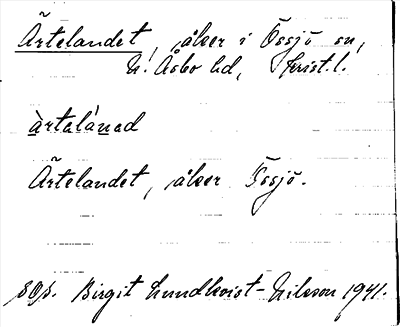 Ärtelandet, åker i Össjö sn,
N. Åsbo hd, Krist. l.
ὰrtalánad
Ärtelandet, åker Össjö.
Birgit Lundkvist-Nilsson 1941.